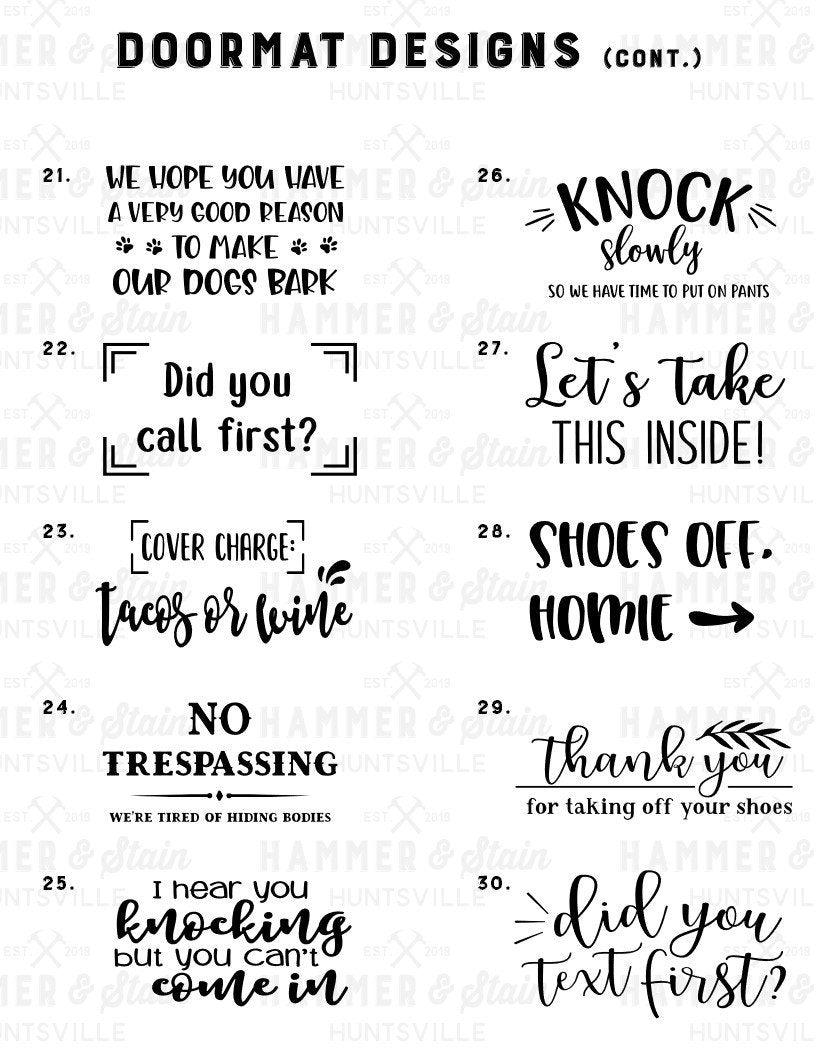 DOORMAT DESIGNS (CONT.)
21.
WE HOPE YOU HAVE
A VERY GOOD REASON
TO MAKE
OUR DOGS BARK
22.
Did you
call first?
23.
COVER CHARGE:
tacos or wine
24.
NO
TRESPASSING
WE'RE TIRED OF HIDING BODIES
25.
I hear you
knocking
but you can't
come in
26.
KNOCK
slowly
SO WE HAVE TIME TO PUT ON PANTS
27.
Let's take
THIS INSIDE!
28.
SHOES OFF,
HOMIE
29.
thank you
for taking off your shoes
30.
did you
text first?
EST. 2019
HAMMER & Stain
HUNTSVILLE